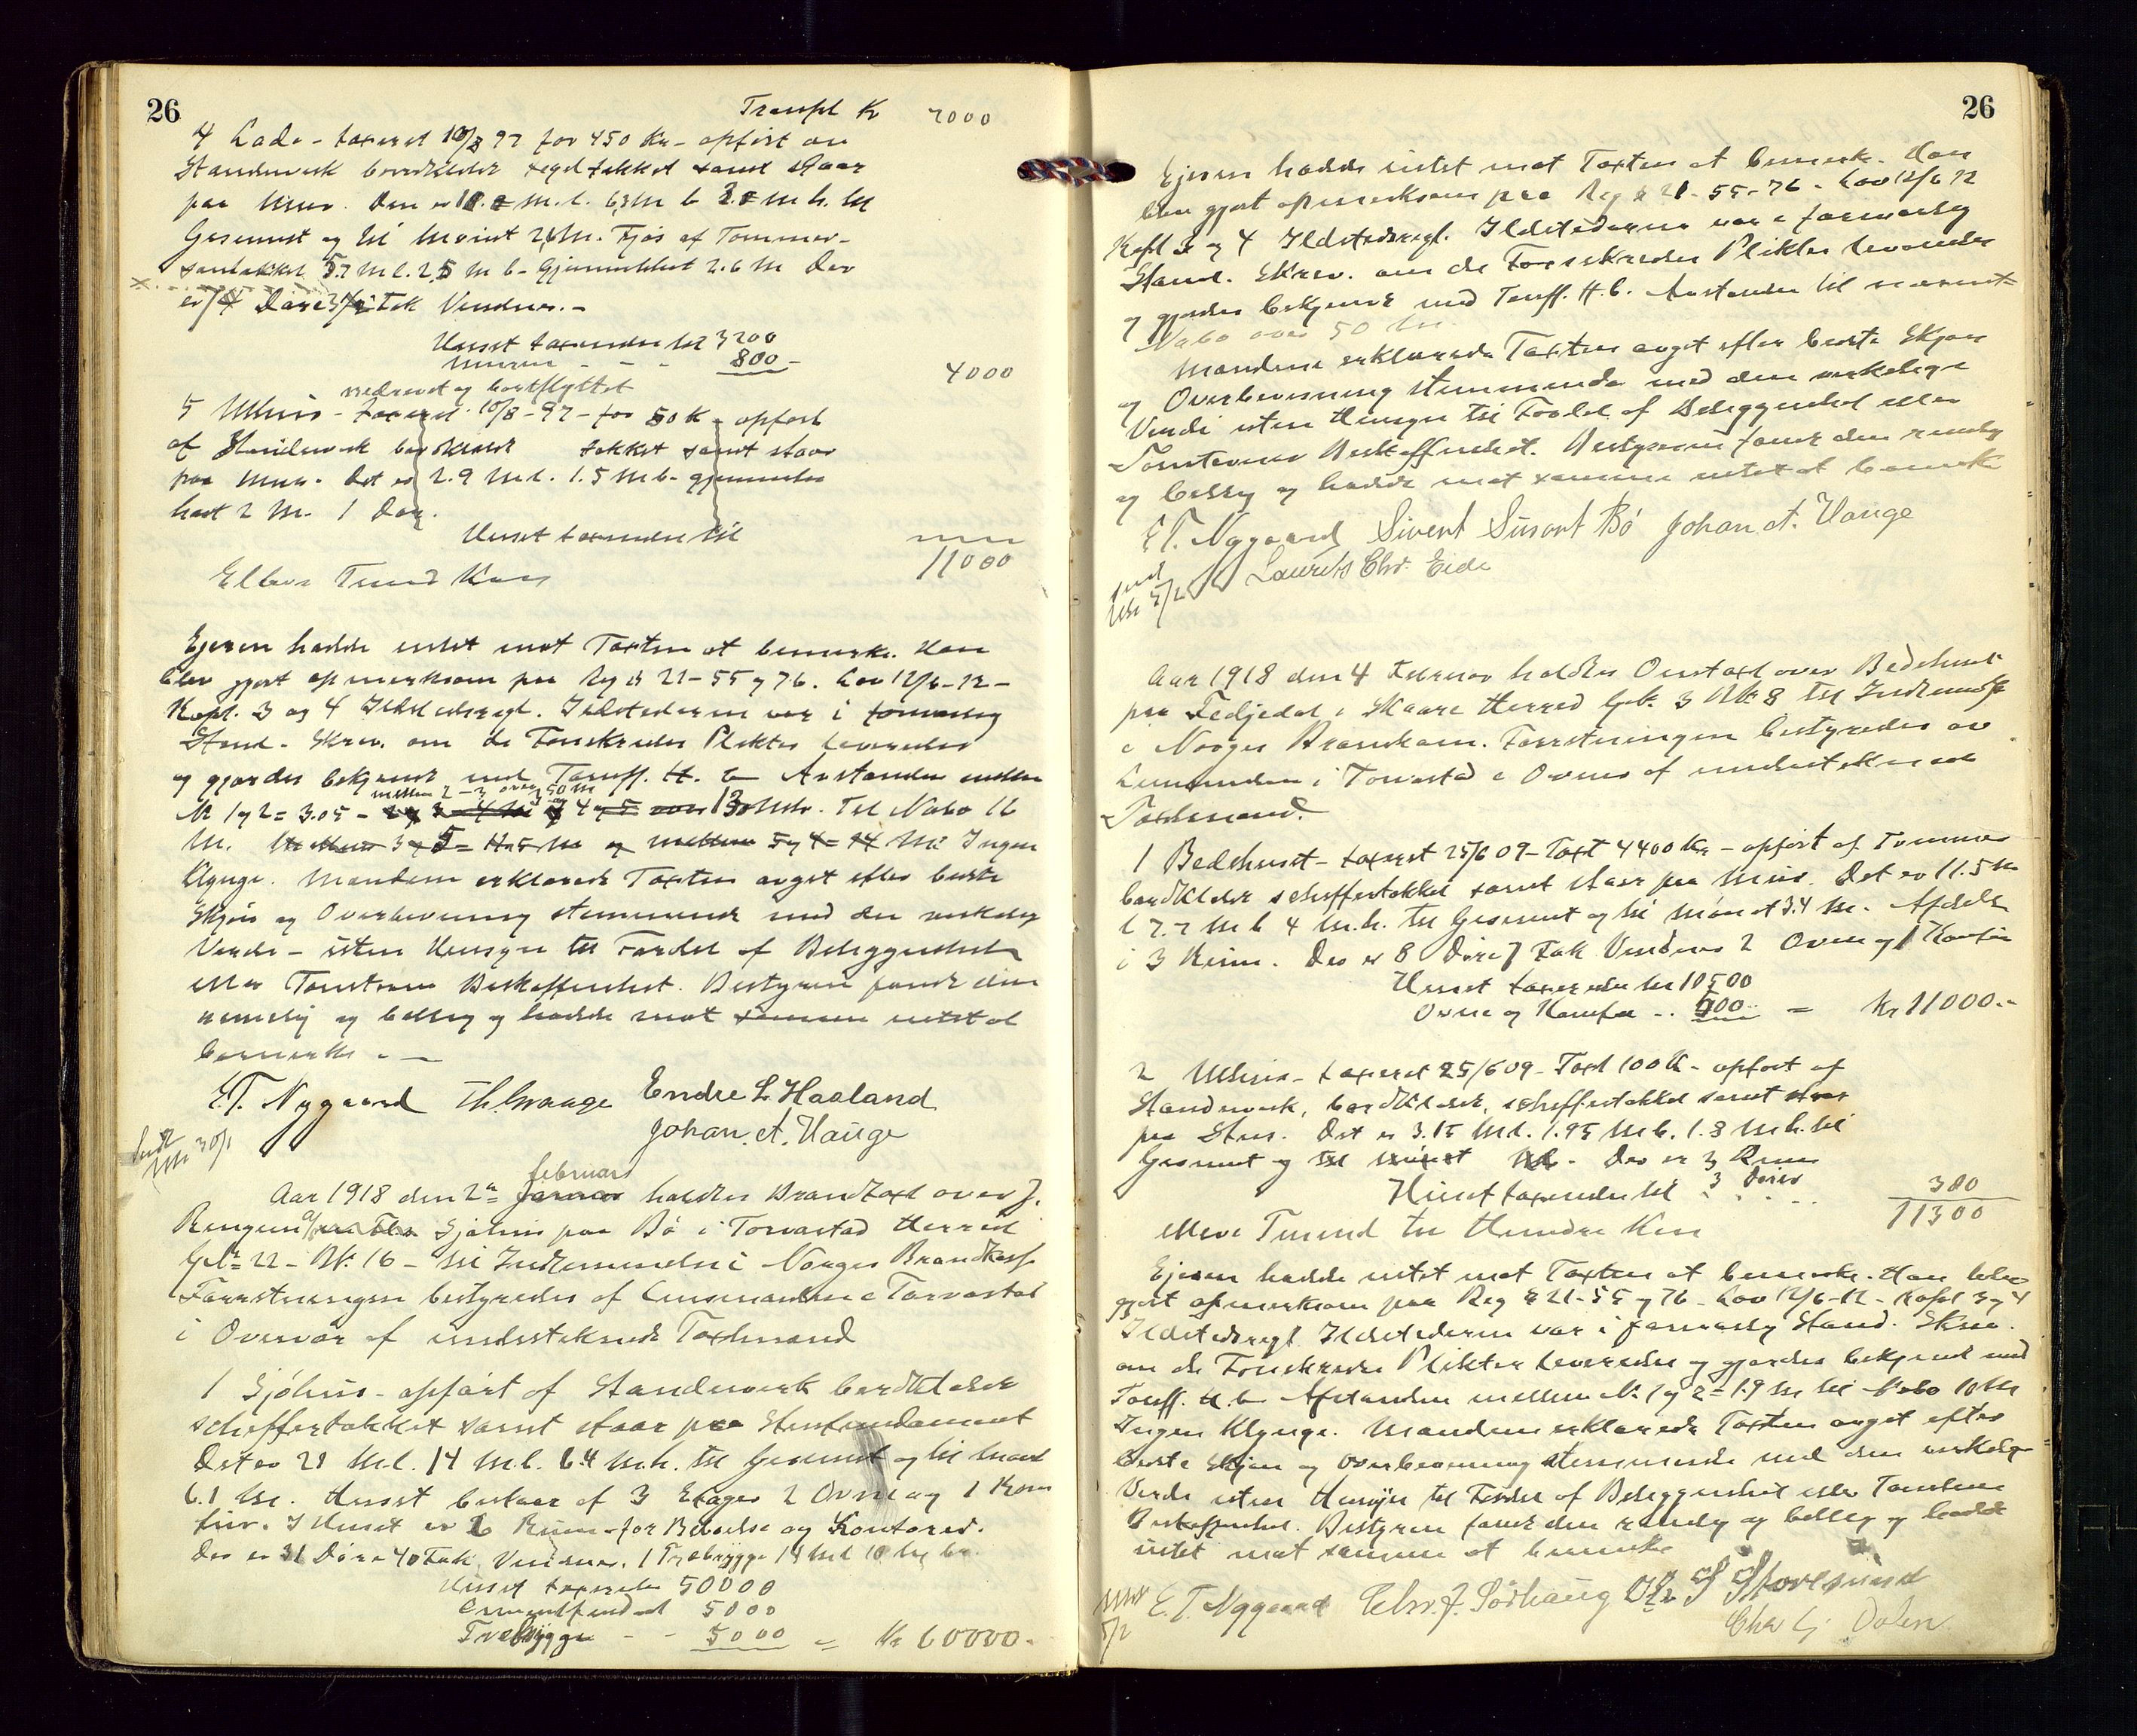 26
Transpt Kr 7000
4 Lade - taxeret 10/8 97 for 450 Kr - opført av
Standerverk bordklædt tegltækket samt staar
paa Mur. Den er m.l. 6,3 m b m h. til
Gesimst og til Mønet m. Fjøs af Tømmer
tækket 5.7 m l. 2,5 m b. Gjennemhøit 2.6 m Der
er Døre Fak Vinduer. -
Huset taxeredes til 3200
Muren - - - 800 -
4000
nedrevet og bortflyttet
5 Uthus - taxeret 10/8 - 97 - for 50 K - opført
af Standerverk bordklædt tækket samt staar
paa Mur. Det er 2.9 m l. 1.5 m b. gjennem
høit 2 m. 1 Dør.
Huset taxeredes til
11000
Elleve Tusind Kroner
Ejeren hadde intet mot Taxten at bemerke. Han
blev gjort opmerksom paa Reg § 21 - 55 og 76. Lov 12/6 - 12 -
Kapl. 3 og 4 Ildstedsregl. Ildstederne var i forsvarlig
Stand - Skrev. om de Foreskrevne Plikter leveredes
og gjordes bekjendt med Tariff. H. b. Avstanden mellem
mellem 2 - 3 over 50 m
Nr 1 og 2 = 3.05 - Til Nabo 16
m. mellem 3 og 5 = 11.5 m og mellem 5 og 4 = 14 m Ingen
Klynge. Mændene erklærede Taxten avget efter beste
Skjøn og Overbevisning stemmende med den virkelige
Verdi - uten Hensyn til Fordel af Beliggenhed
eller Tomtens Beskaffenhet. Bestyreren fandt den
rimelig og billig og hadde mot samme intet at
bemerke. -
E.T. Nygaard Endre L Haaland
Johan A. Hauge
30/1
februar
Aar 1918 den 2n Januar holdtes Brandtaxt over J.
Sjøhus paa Bø i Torvastad Herred
Gnr 22 - Bnr 16 - til Indlemmelse i Norges Brandkasse
Forretningen bestyredes af Lensmanden i Torvastad
i Overvær af undertegnede Taxtmænd
1 Sjøhus - opført af Standerverk bordklædt
skiffertækket samt staar paa Stenfundament
Det er 28 m l. 14 m b. 6.4 m h. til Gesimst og til Mønet
6.1 m. Huset bestaar af 3 Etager 2 Ovne og 1 Kom
fur. I Huset er 6 Rum for Beboelse og Kontorer.
Der er 31 Døre 40 Fak Vinduer. 1 Træbrygge 14 m l 10 m br.
Huset taxeredes 50000
Cementfundamt 5000
Træbrygge - - 5000 = Kr 60000.-
26
Ejeren hadde intet mot Taxten at bemerke. Han
blev gjort opmerksom paa Reg § 21 - 55 - 76 - Lov 12/6 12
Kapl 3 og 4 Ildstedsregl. Ildstederne var i forsvarlig
Stand. Skrev. om de Foreskrevne Plikter leveredes
og gjordes bekjendt med Tariff. H.b. Avstanden til nærmeste
Nabo over 50 m.
Mændene erklærede Taxten avget efter beste Skjøn
og Overbevisning stemmende med den virkelige
Verdi uten Hensyn til Fordel af Beliggenhed eller
Tomternes Beskaffenhet. Bestyreren fandt den rimelig
og billig og hadde mot samme intet at bemerke
E.T. Nygaard Sivert Bø Johan A. Hauge
Laurits Chr. Eide
5/2
Aar 1918 den 4 Februar holdtes Omtaxt over Bedehuset
paa Fedjedal i Skaare Herred Gnr. 3 Bnr 8 til Indlemmelse
i Norges Brandkasse. Forretningen bestyredes av
Lensmanden i Torvastad i Overvær af undertegnede
Taxtmænd.
1 Bedehuset - taxeret 25/6 09 - Taxt 4400 Kr - opført af Tømmer
bordklædt skiffertækket samt staar paa Mur. Det er 11.5 m
l 7.7 m b 4 m.h. til Gesimst og til Mønet 3.4 m. Afdelt
i 3 Rum. Der er 8 Døre 7 Fak Vinduer 2 Ovne og 1 Komfur
Huset taxeredes til 10500
Ovne og Komfur .. 500 = Kr 11000.-
2 Uthus - taxeret 25/6 09 - Taxt 100 K - opført af
Standerverk, bordklædt, skiffertækket samt staar
paa Sten. Det er 3.15 m l. 1.95 m b. 1.8 m h. til
Gesimst og til Mønet. Der er 3 Rum
3 Dører
Huset taxeredes til 300
11300
elleve Tusind tre Hundre Kroner
Ejeren hadde intet mot Taxten at bemerke. Han blev
gjort opmerksom paa Reg § 21 - 55 og 76 - Lov 12/6 - 12 - Kapl 3 og 4
Ildstedsregl. Ildstederne var i forsvarlig Stand. Skrev.
om de Foreskrevne Plikter leveredes og gjordes bekjendt med
Tariff. H.b. Afstanden mellem Nr 1 og 2 = 1.9 m til Nabo 10 m
Ingen Klynge. Mændene erklærede Taxten avget efter
beste Skjøn og Overbevisning stemmende med den virkelige
Verdi uten Hensyn til Fordel af Beliggenhed eller Tomtens
Beskaffenhet. Bestyreren fandt den rimelig og billig og hadde
intet mot samme at bemerke
E.T. Nygaard Chr. J. Sørhaug Storesund
5/2
Dalen